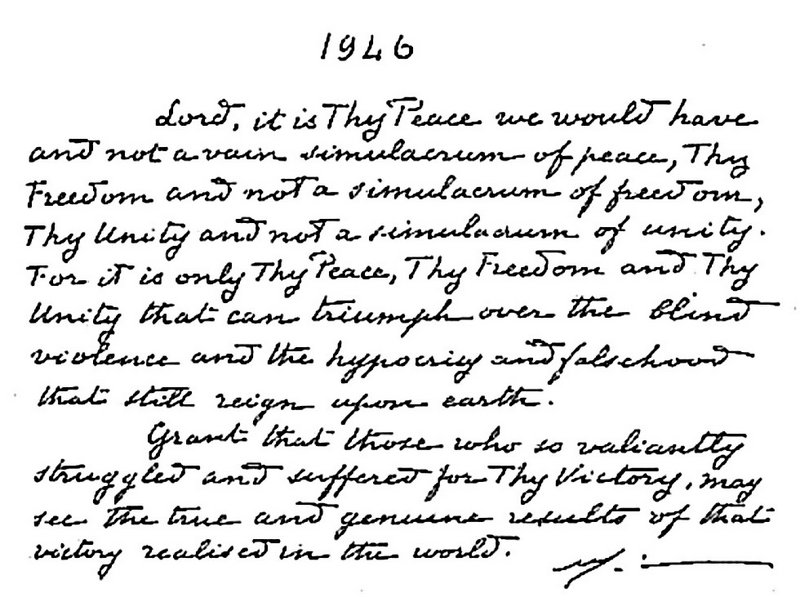 1946
Lord, it is Thy Peace we would have
and not a vain simulacrum of peace, Thy
Freedom and not a simulacrum of freedom,
Thy Unity and not a simulacrum of unity.
For it is only Thy Peace, Thy Freedom and Thy
Unity that can triumph over the blind
violence and the hypocrisy and falsehood
that still reign upon earth.
Grant that those who so valiantly
struggled and suffered for Thy Victory, may
see the true and genuine results of that
victory realised in the world.